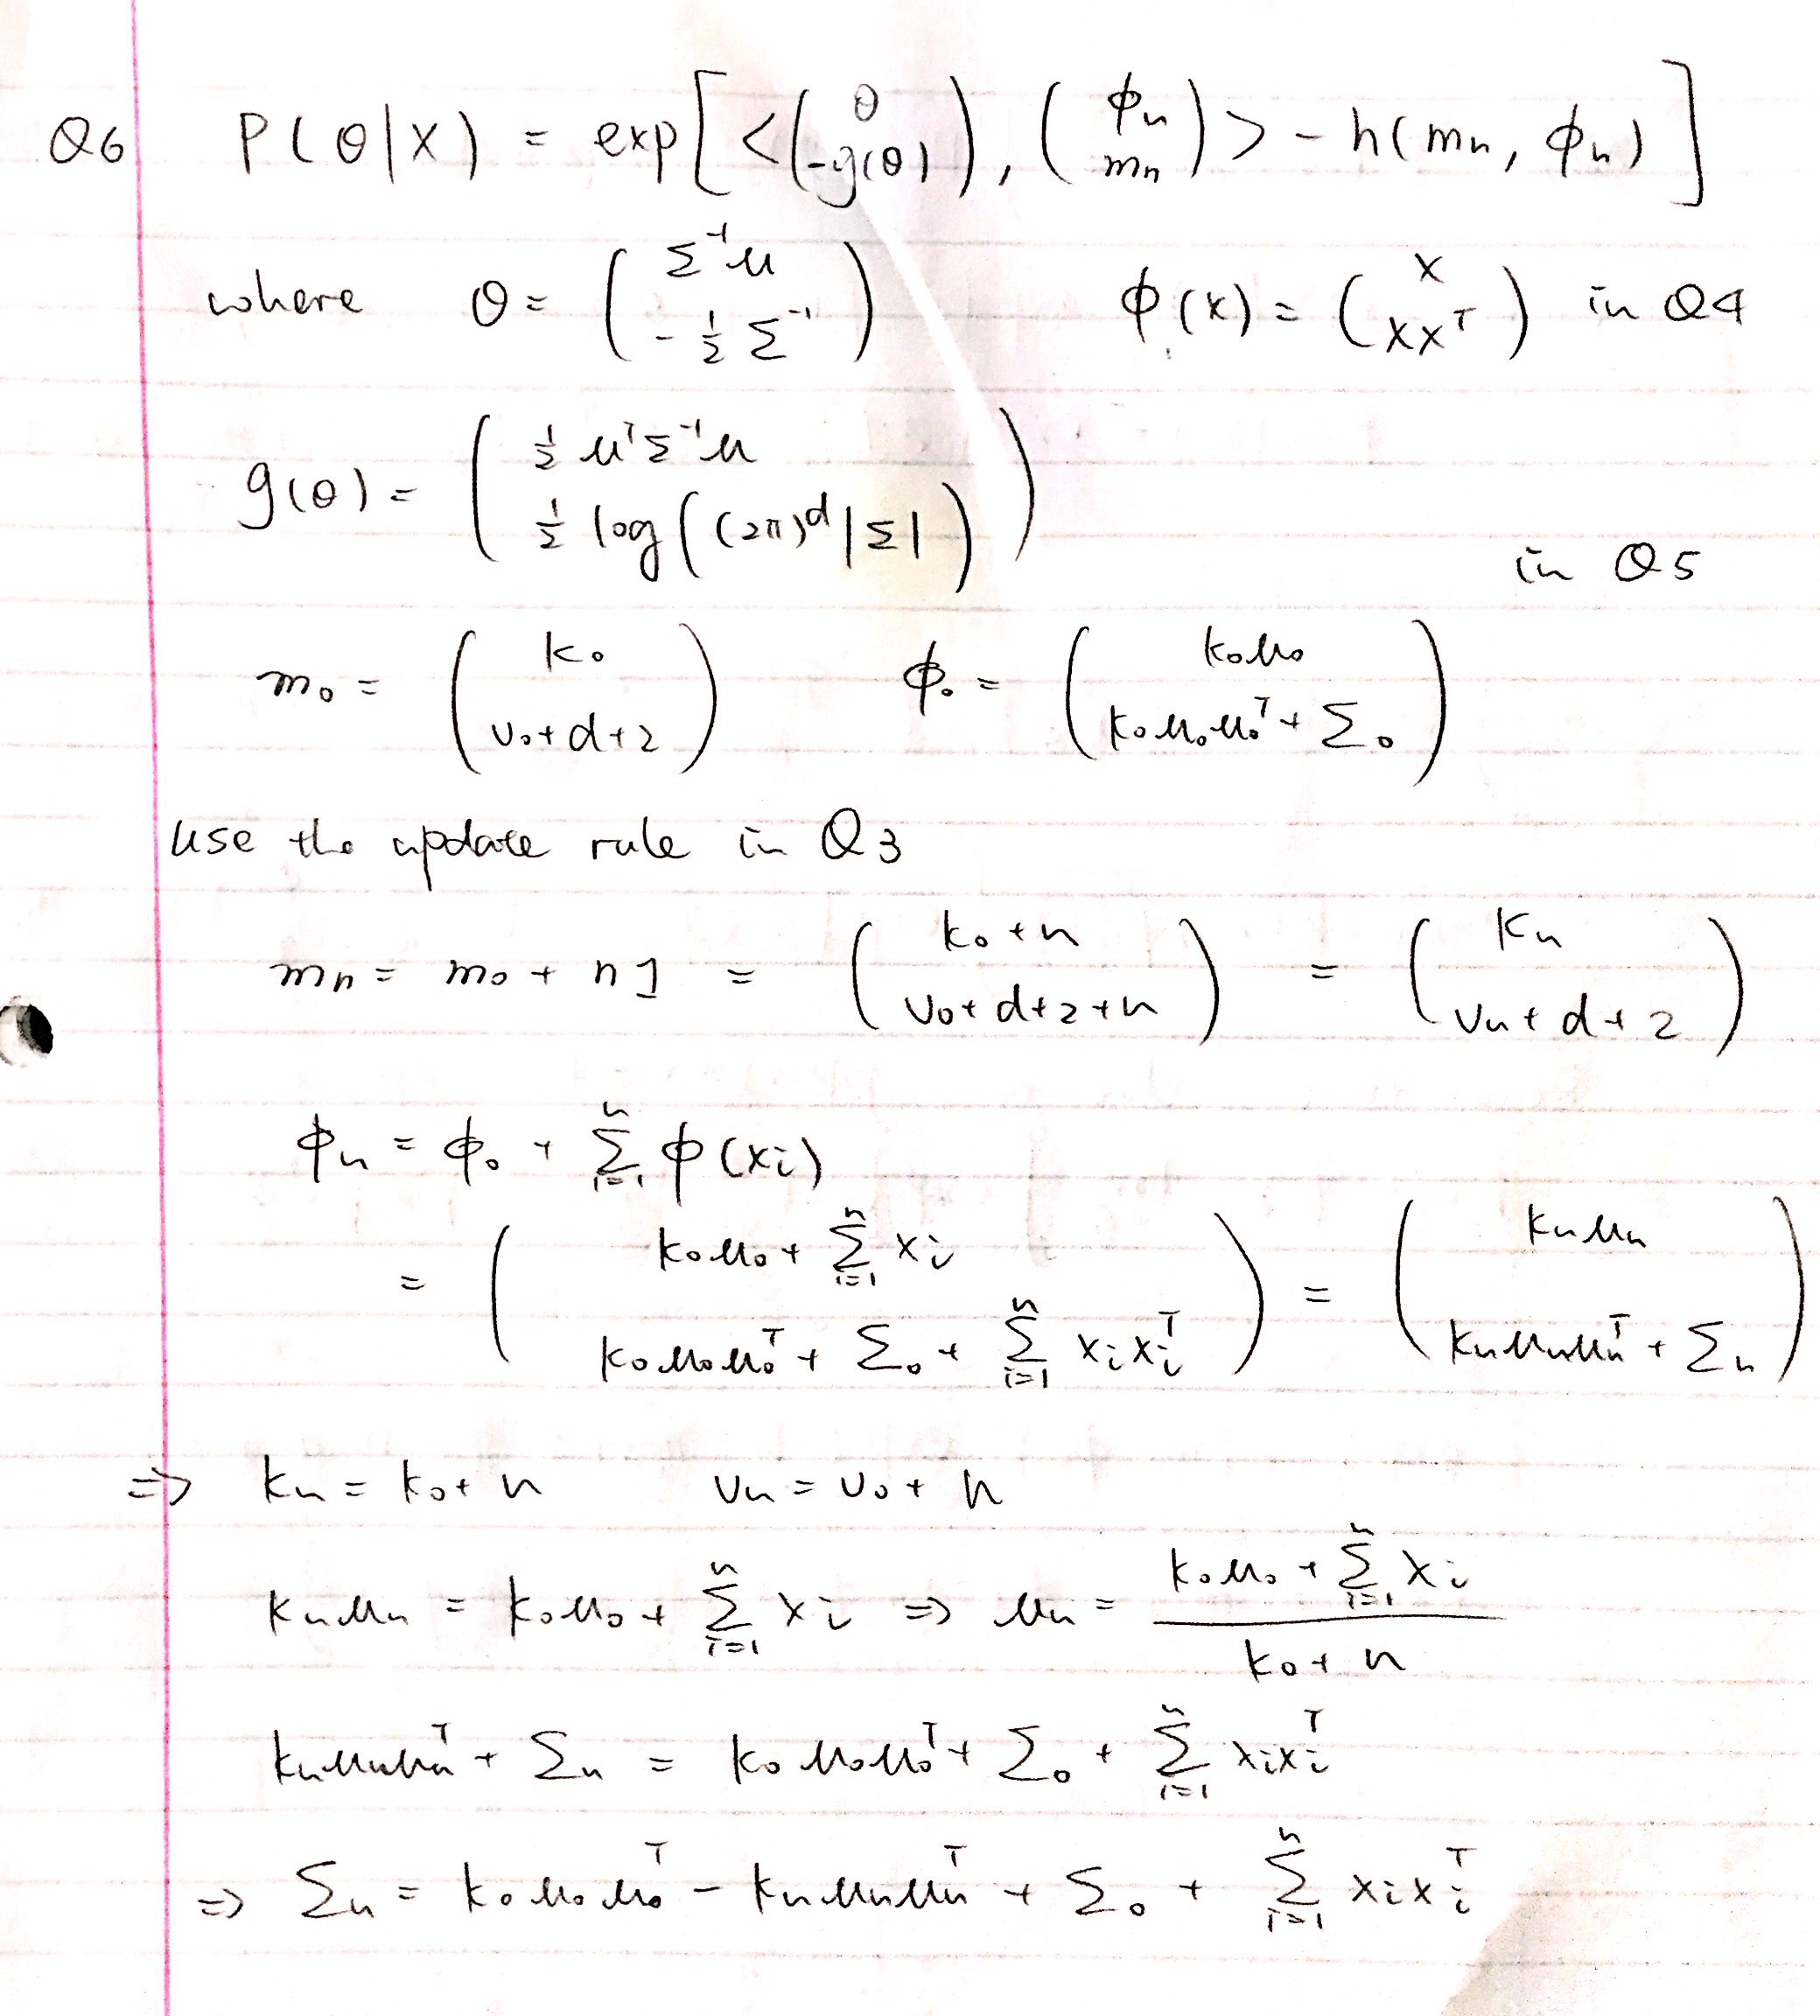 Q6 P(θ|X) = exp[ <(θ, -g(θ)), (ϕn, mn)> - h(mn, ϕn) ]
where θ = ( Σ⁻¹μ, -½ Σ⁻¹ ) ϕ(x) = ( x, xxᵀ ) in Q4
g(θ) = ( ½ μᵀΣ⁻¹μ, ½ log((2π)ᵈ|Σ|) ) in Q5
m₀ = ( k₀, υ₀+d+2 ) ϕ₀ = ( k₀μ₀, k₀μ₀μ₀ᵀ + Σ₀ )
use the update rule in Q3
mn = m₀ + n1 = ( k₀+n, υ₀+d+2+n ) = ( kn, υn+d+2 )
ϕn = ϕ₀ + Σᵢ₌₁ⁿ ϕ(xi)
= ( k₀μ₀ + Σᵢ₌₁ⁿ xi, k₀μ₀μ₀ᵀ + Σ₀ + Σᵢ₌₁ⁿ xi xiᵀ ) = ( knμn, knμnμnᵀ + Σn )
=> kn = k₀+n υn = υ₀+n
knμn = k₀μ₀ + Σᵢ₌₁ⁿ xi => μn = (k₀μ₀ + Σᵢ₌₁ⁿ xi) / (k₀+n)
knμnμnᵀ + Σn = k₀μ₀μ₀ᵀ + Σ₀ + Σᵢ₌₁ⁿ xixiᵀ
=> Σn = k₀μ₀μ₀ᵀ - knμnμnᵀ + Σ₀ + Σᵢ₌₁ⁿ xixiᵀ